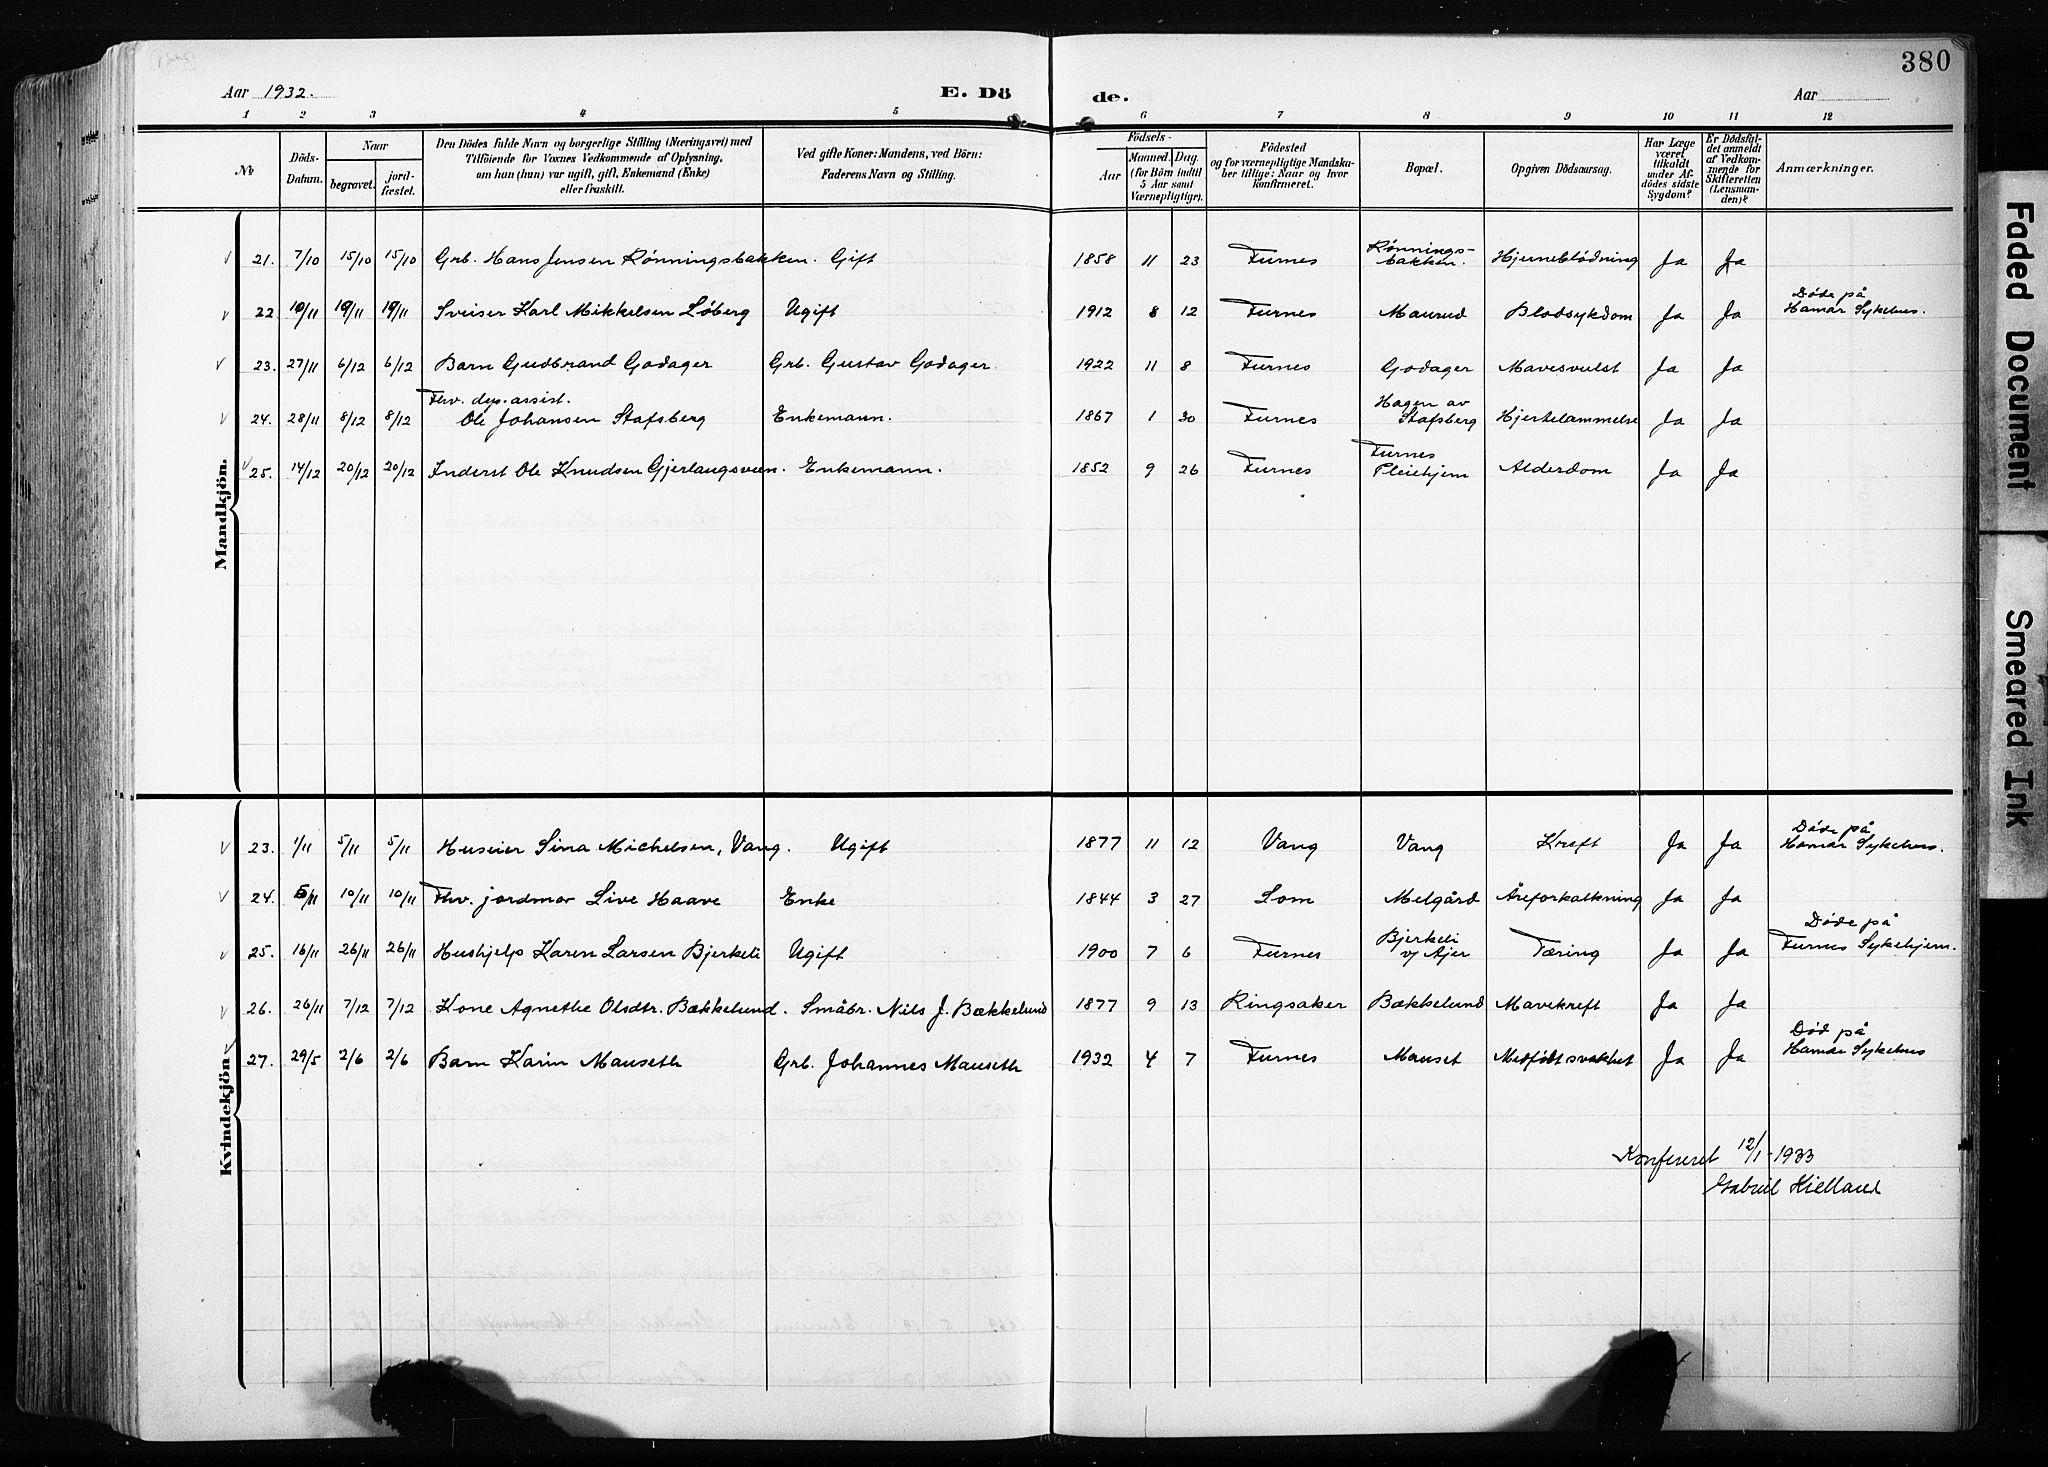 380
Aar 1932.
E. Dö
de.
Aar
1 2 3 4 5 6 7 8 9 10 11 12
No
Döds-Datum.
Naar
begravet.
jordfæstet.
Den Dödes fulde Navn og borgerlige Stilling (Næringsvei) med
Tilföiende for Voxnes Vedkommende af Oplysning,
om han (hun) var ugift, gift, Enkemand (Enke)
eller fraskilt.
Ved gifte Koner: Mandens, ved Börn:
Faderens Navn og Stilling.
Födsels-
Aar
Maaned. Dag.
(for Börn indtil
5 Aar samt
Værnepligtige).
Födested
og for værnepligtige Mandskaber tillige: Naar og hvor
konfirmeret.
Bopæl.
Opgiven Dödsaarsag.
Har Læge
været
tilkaldt
under Afdödes sidste
Sygdom?
Er Dödsfaldet anmeldt
af Vedkommende for
Skifteretten
(Lensmanden)?
Anmærkninger.
Mandkjön.
21. 7/10 15/10 15/10 Grb. Hans Jensen Rønningsbakken. Gift 1858 11 23 Furnes Rønningsbakken. Hjerneblødning Ja Ja
22 10/11 19/11 19/11 Sveiser Karl Mikkelsen Løberg Ugift 1912 8 12 Furnes Maurud Blodsykdom Ja Ja Døde på Hamar Sykehus.
23. 27/11 6/12 6/12 Barn Gudbrand Godager Grb. Gustav Godager. 1922 11 8 Furnes Godager Mavesvulst Ja Ja
24. 28/11 8/12 8/12 Fhv. dys. assist. Ole Johansen Stafsberg Enkemann. 1867 1 30 Furnes Hagen av Stafsberg Hjertelammelse Ja Ja
25. 14/12 20/12 20/12 Inderst Ole Knudsen Gjerlaugsveen. Enkemann. 1852 9 26 Furnes Furnes Pleiehjem Alderdom Ja Ja
Kvindekjön
23. 1/11 5/11 5/11 Huseier Sina Michelsen, Vang. Ugift 1877 11 12 Vang Vang Kreft Ja Ja Døde på Hamar Sykehus.
24. 5/11 10/11 10/11 Fhv. jordmor Live Haave Enke 1844 3 27 Lom Melgård Åreforkalkning Ja Ja
25. 16/11 26/11 26/11 Hushjelp Karen Larsen Bjerkeli Ugift 1900 7 6 Furnes Bjerkeli v/ Ajer Tæring Ja Ja Døde på Furnes Sykehjem.
26. 26/11 7/12 7/12 Kone Agnethe Olsdtr. Bækkelund. Småbr. Nils J. Bækkelund 1877 9 13 Ringsaker Bækkelund Mavekreft Ja Ja
27. 29/5 2/6 2/6 Barn Karin Mauseth Grb. Johannes Mauseth 1932 4 7 Furnes Mauset Medfødt svakhet Ja Ja Død på Hamar Sykehus
Konfereret 12/1-1933
Gabriel Kielland
Faded Document
Smeared Ink